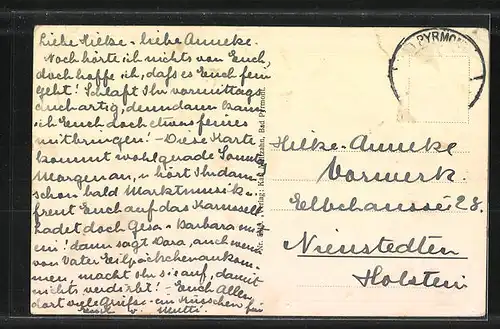 Liebe Hilke - liebe Anneke.
Noch hörte ich nichts von Euch,
doch hoffe ich, dafs es Euch fein
geht! Schlaft Ihr vormittags
auch artig, denn dann kann
ich Euch doch etwas feines
mitbringen! - Diese Karte
kommt wohl grade Sonnt
Morgen an, u hört Ihr dann
schon bald Marktmusik -
freut Euch auf das Karussell
ladet doch Gesa - Barbara mit
ein! dann sagt Dora, auch wenn
von Vater Eilpäckchen ankom-
men, macht Ihr sie auf, damit
nichts verdirbt! - Euch Allen
dort viele Grüfse - ein Küsschen für
v. Mutti.
Verlag: Karl Bad Pyrmont.
PYRMONT
Hilke-Anneke
Vormerk.
Elbchaussé 28.
Nienstedten
Holstein